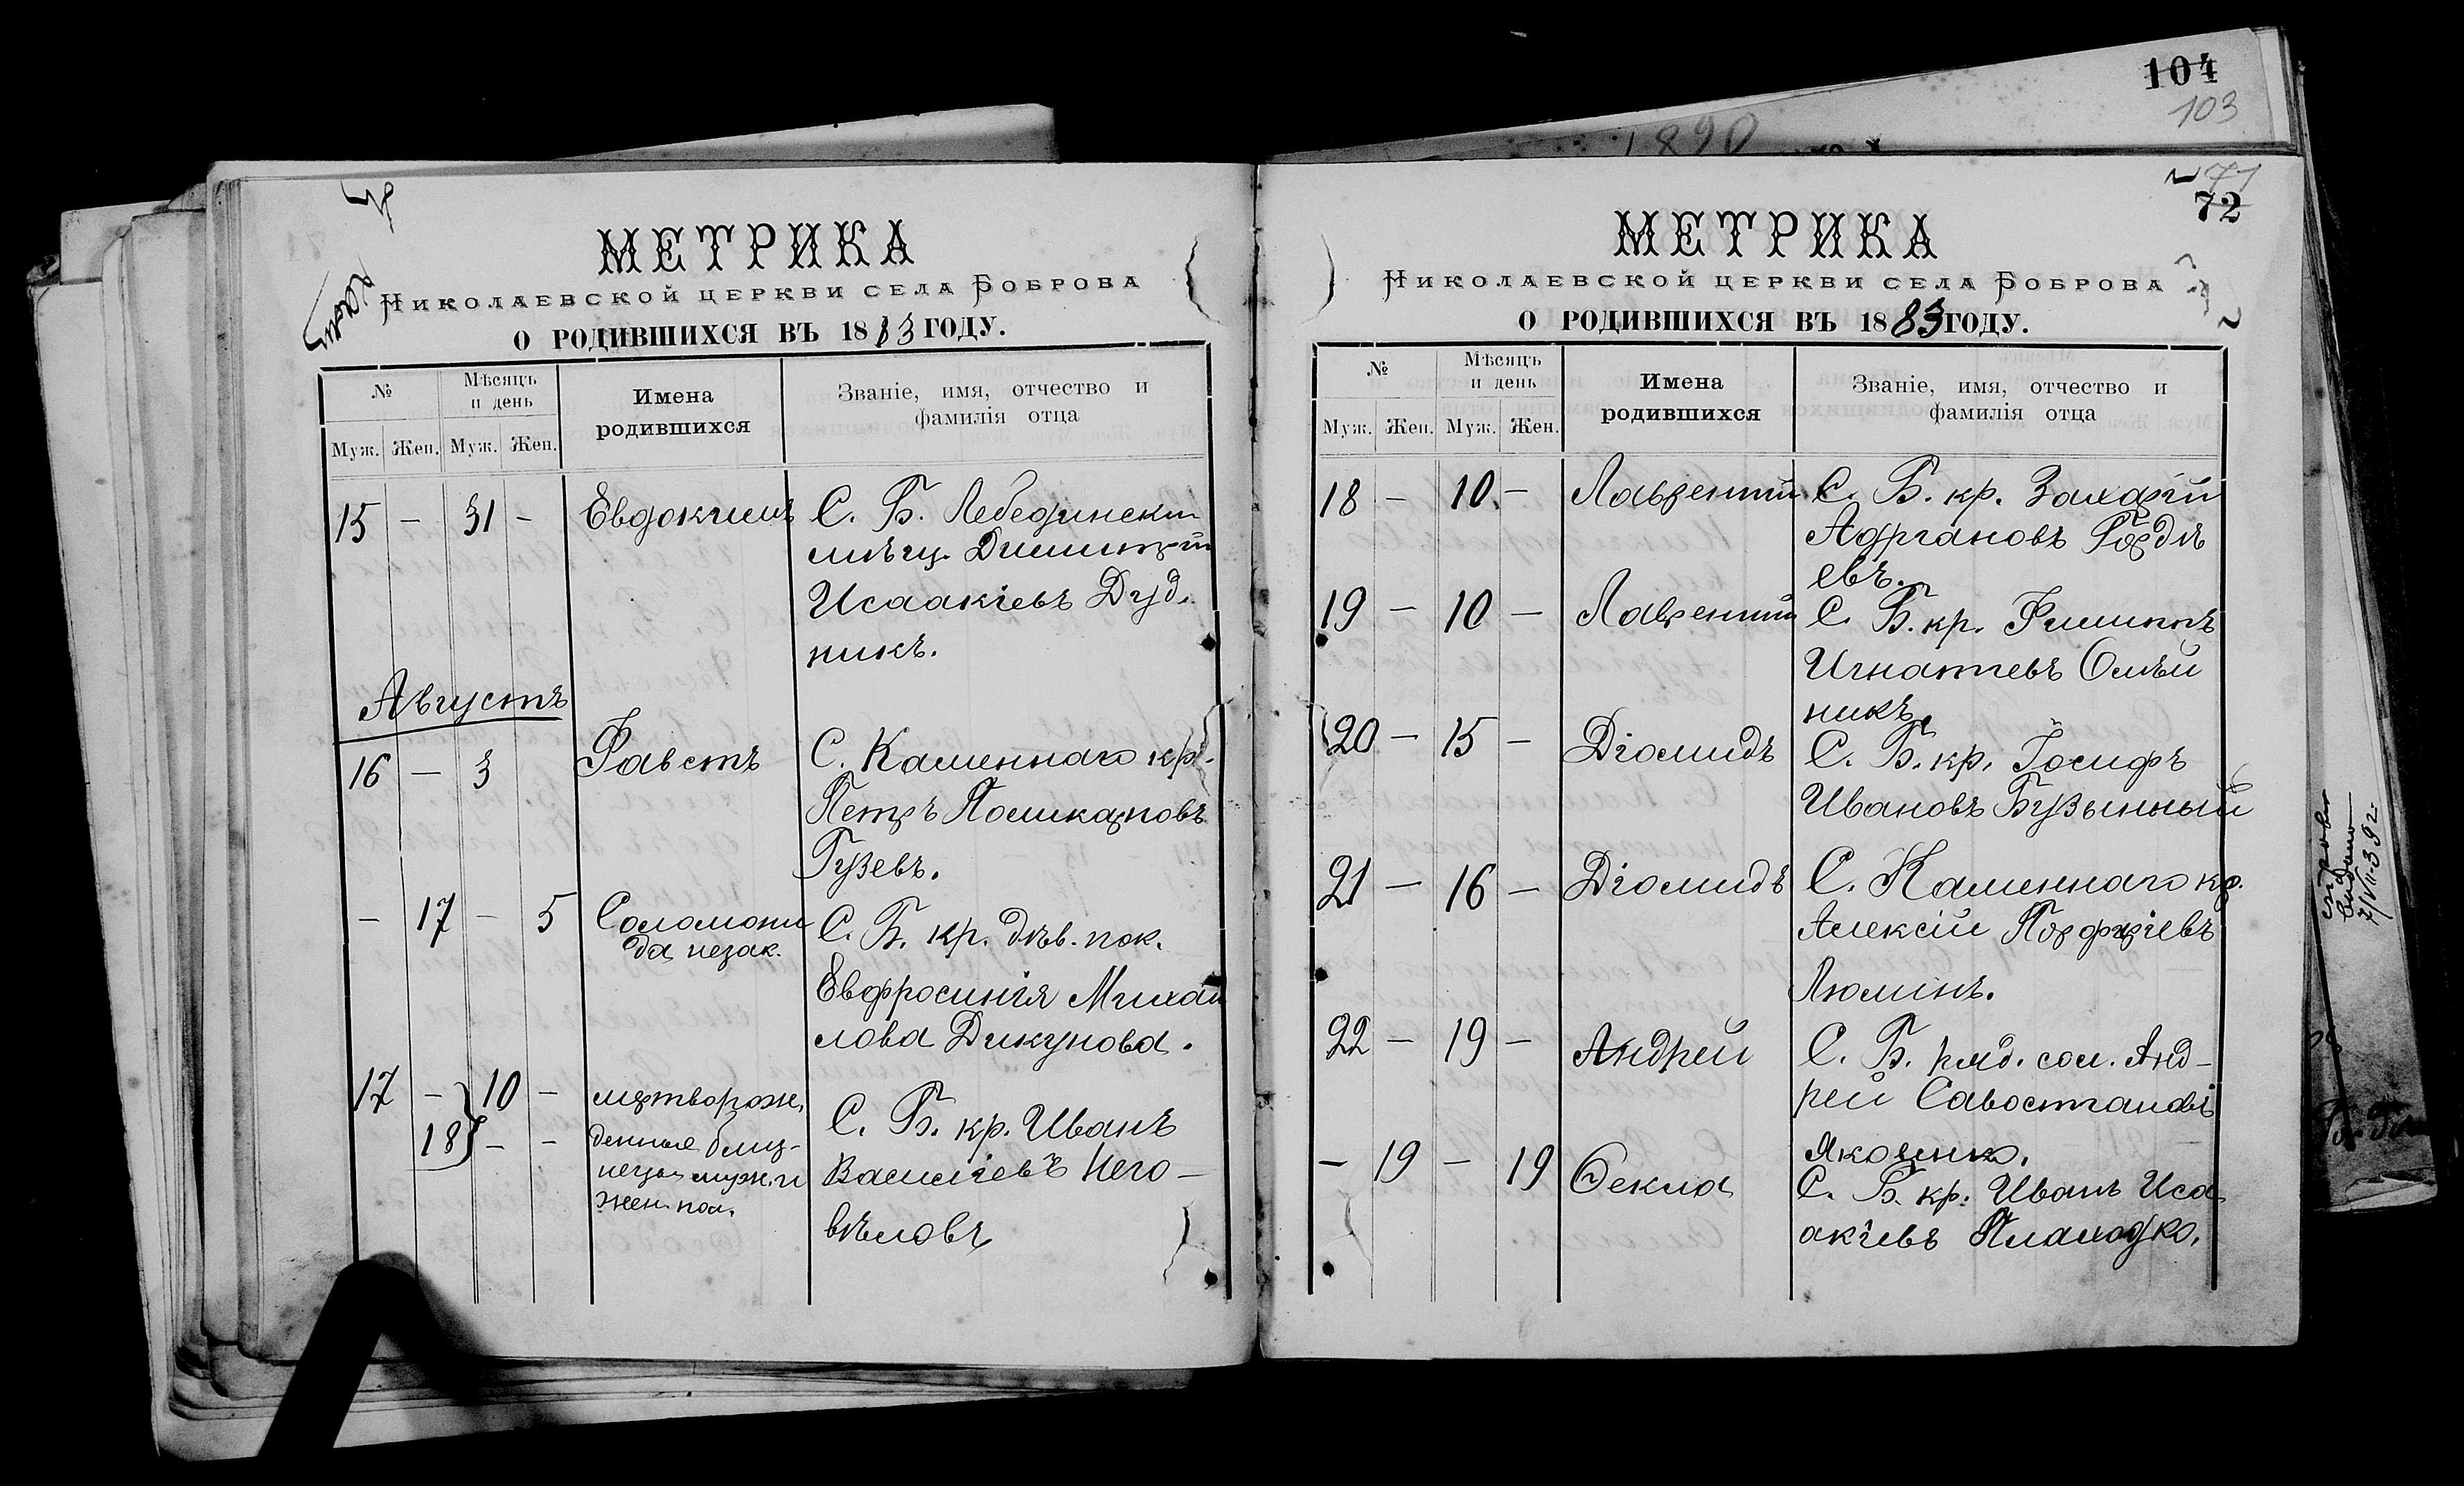 104
103
1890
МЕТРИКА
НИКОЛАЕВСКОЙ ЦЕРКВИ СЕЛА БОБРОВА
О РОДИВШИХСЯ ВЪ 1883 ГОДУ.
№
Мѣсяцъ и день
Имена родившихся
Званіе, имя, отчество и фамилія отца
Муж. Жен. Муж. Жен.
15 – 31 – Евдокимъ С. Б. Лебединскій
мѣщ. Димитрій
Исаакіевъ Дуд-
никъ.
Августъ
16 – 3 Фавстъ С. Каменнаго кр.
Петръ Поликарповъ
Гузевъ.
– 17 – 5 Соломони
да незак.
С. Б. кр. дѣв. нок.
Евфросинія Михай
лова Дикунова.
17 – 10 – мертворож.
18 – – денные близ-
нецы муж. и
жен. пол.
С. Б. кр. Иванъ
Василіевъ Него–
вѣловъ
71
72
МЕТРИКА
НИКОЛАЕВСКОЙ ЦЕРКВИ СЕЛА БОБРОВА
О РОДИВШИХСЯ ВЪ 1883 ГОДУ.
№
Мѣсяцъ и день
Имена родившихся
Званіе, имя, отчество и фамилія отца
Муж. Жен. Муж. Жен.
18 – 10. – Лаврентій С. Б. кр. Захарій
Адріановъ Гордѣ
евъ.
19 – 10 – Лаврентій С. Б. кр. Филиппъ
Игнатіевъ Олѣй
никъ.
20 – 15 – Діомидъ С. Б. кр. Іосифъ
Ивановъ Бузынный
21 – 16 – Діомидъ С. Каменнаго кр.
Алексій Порфиріевъ
Люминъ.
22 – 19 – Андрей С. Б. ряд. сол. Анд–
рей Савостіановъ
Яковенко.
– 19 – 19 Ѳекла С. Б. кр. Иванъ Иса
акіевъ Плаходко.